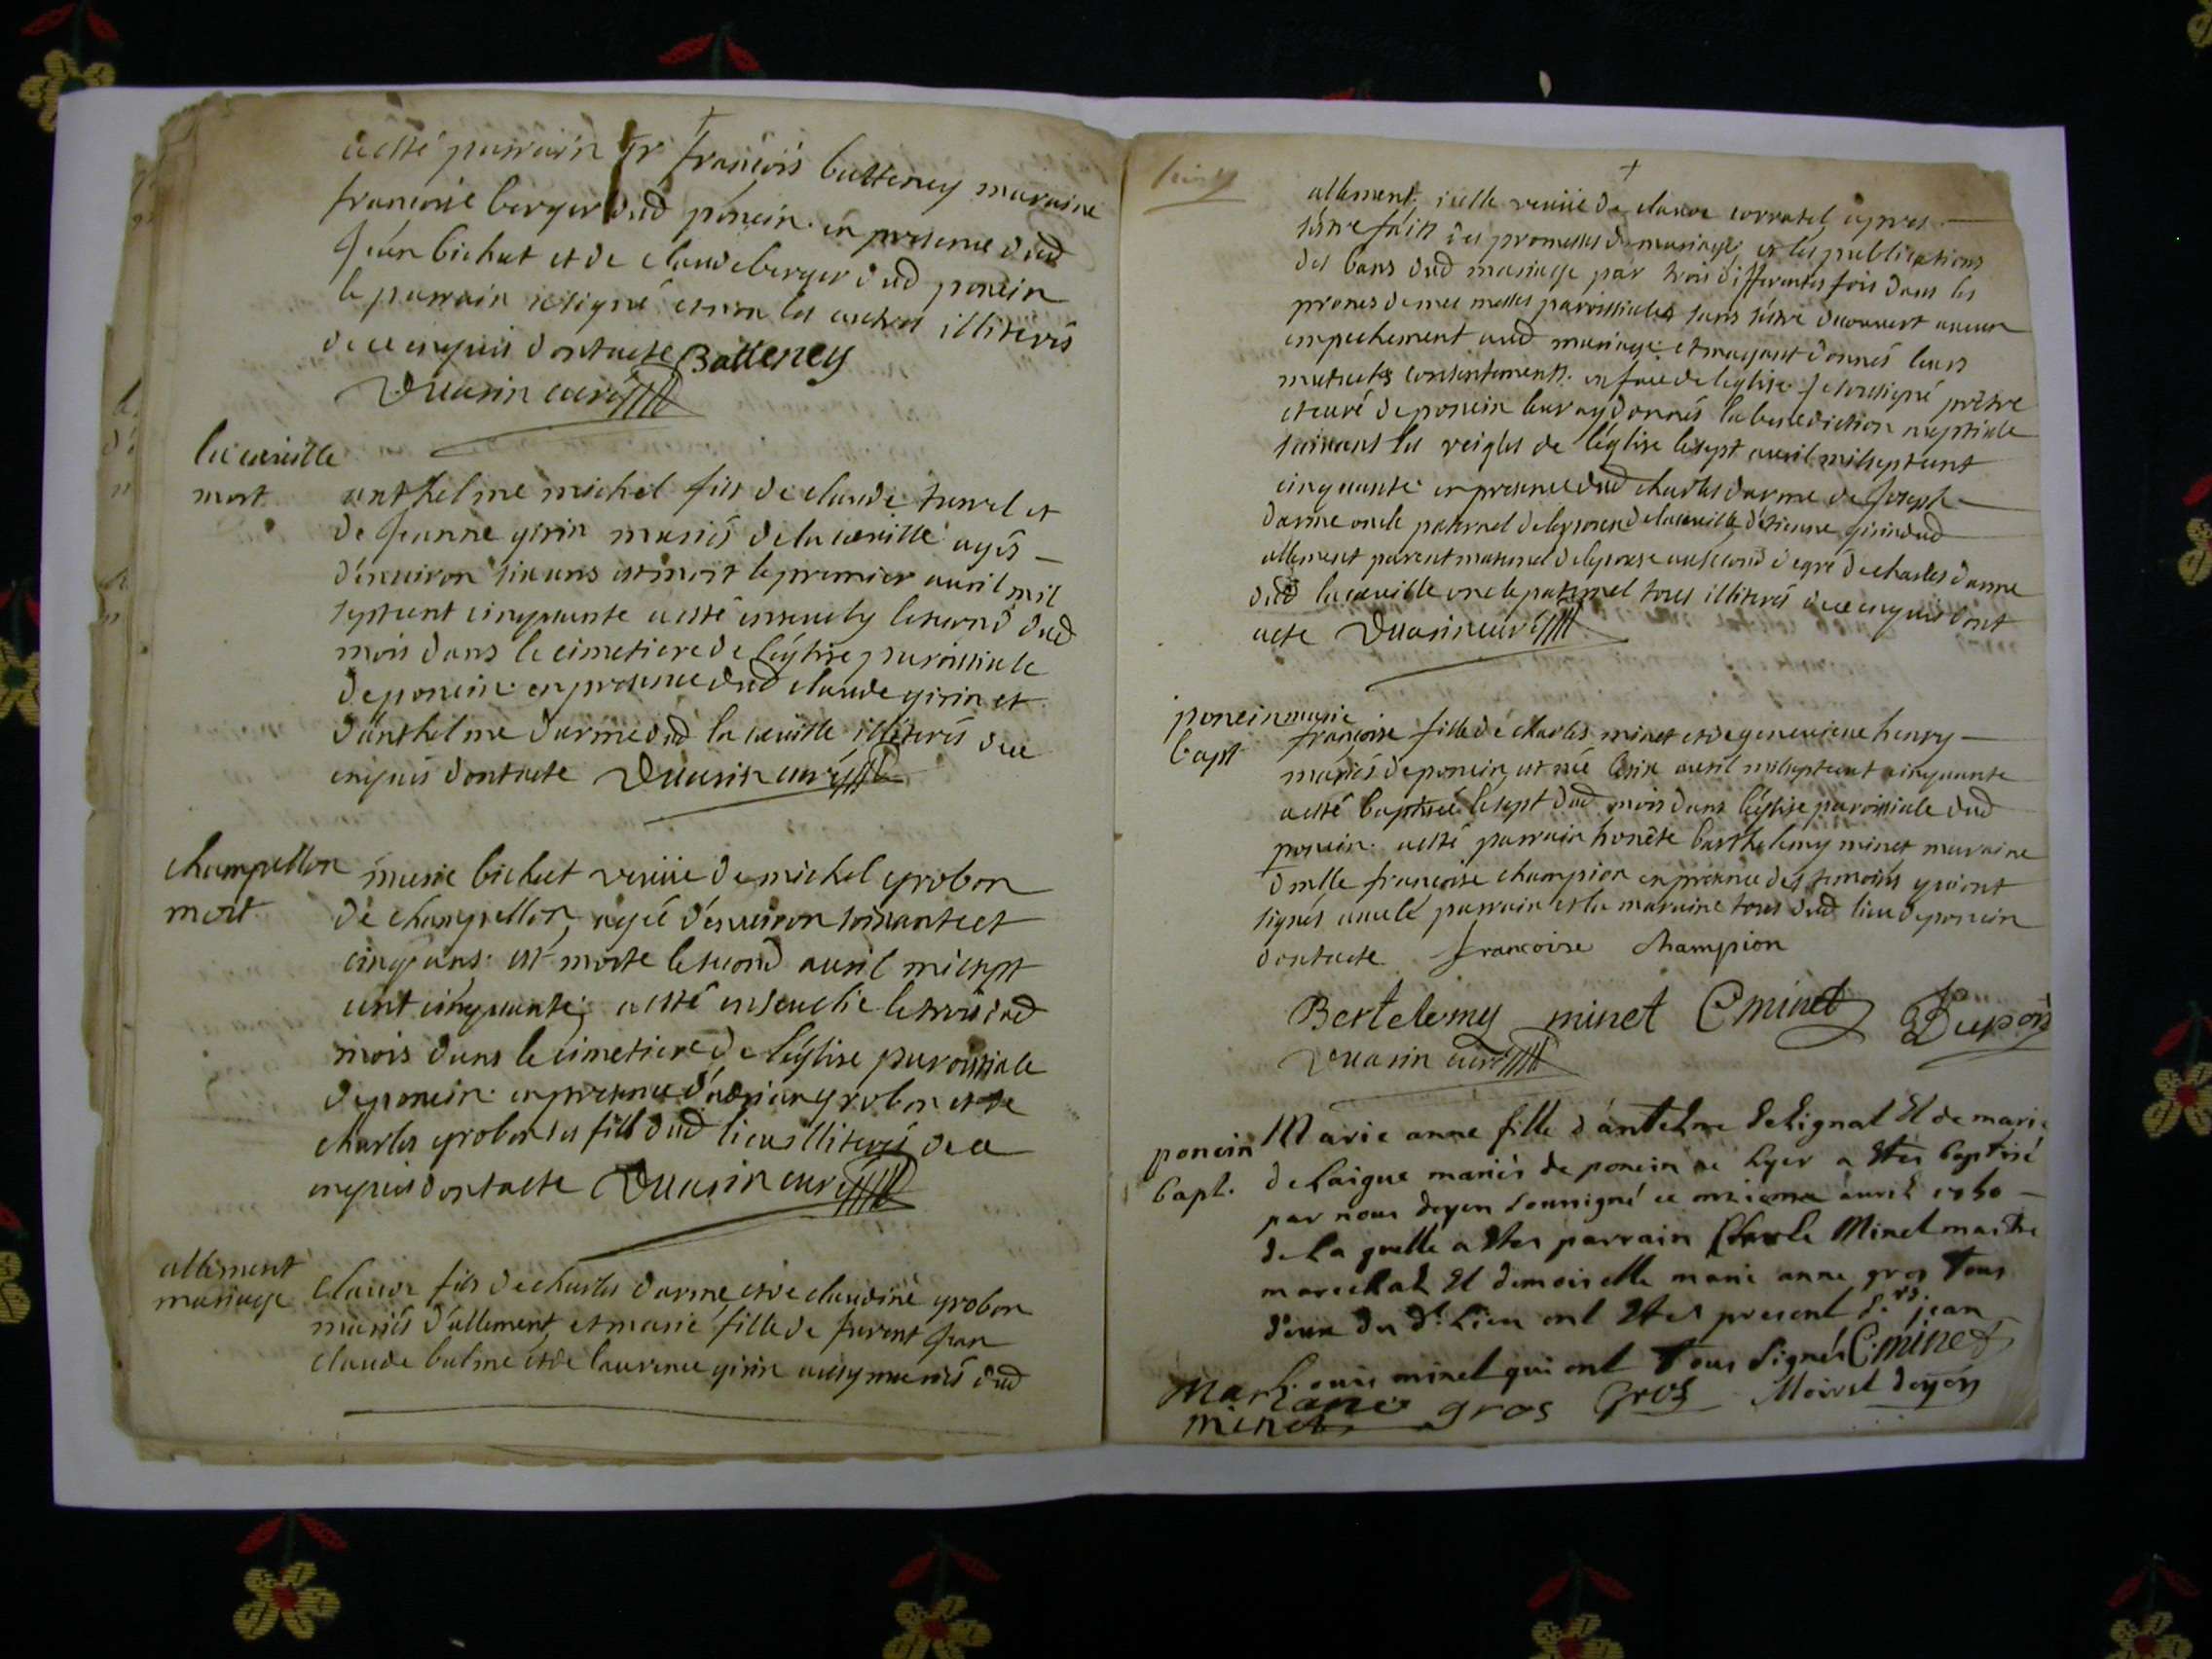 a esté parrain Sr françois batteney maraine
francoise berger dud poncin. en presence dud
Jean bichat et de claude berger dud poncin
le parrain a signé et non les autres illiterés
de ce enquis dont acte Batteney
Duasin curé
la cueille
mort
anthelme michel fils de claude turrel et
de Jeanne girin mariés de la cueille agés
d'environ six ans est mort le premier avril mil
sept cent cinquante a esté ensevely le second dud
mois dans le cimetiere de l'église paroissiale
de poncin. en presence dud claude girin et
d'anthelme darme dud la cueille illiterés de ce
enquis dont acte Duasin curé
champellon
mort
marie bichat veuve de michel grobon
de champellon, agée d'environ soixante et
cinq ans. est morte le second avril mil sept
cent cinquante, a esté ensevelie le trois dud
mois dans le cimetiere de l'église paroissiale
de poncin. en presence d'adrian grobon et de
charles grobon ses fils dud lieu illiterés de ce
enquis dont acte Duasin curé
allement
mariage
claude fils de charles darme et de claudine grobon
mariés d'allement et marie fille de furent Jean
claude balme et de laurence girin aussy mariés dud
allement, icelle veuve de claude corratel, apres
s'estre faits des promesses de mariage, et les publications
des bans dud mariage par trois differentes fois dans les
prones de mes messes paroissiales sans s'estre decouvert aucun
empechement aud mariage. et m'ayant donnés leurs
mutuels consentements. en face de l'eglise. Je soussigné prestre
et curé de poncin leur ay donnés la benediction nuptiale
suivant les reigles de l'église le sept avril mil sept cent
cinquante. en presence dud charles darme de Joseph
darme oncle paternel de l'epoux de la cueille, d'étienne girin dud
allement parent maternel de l'epouse au second degré de charles darme
dud la cueille oncle paternel tous illiterés de ce enquis dont
acte Duasin curé
poncin
bapt
marie
francoise fille de charles minet et de genevieve henry
mariés de poncin, est née le six avril mil sept cent cinquante
a esté baptisée le sept dud mois dans l'église paroissiale dud
poncin. a esté parrain honête barthelemy minet maraine
dmlle francoise champion en presence des temoins qui ont
signés avec le parrain et la maraine tous dud lieu de poncin
dont acte francoise champion
Bertelemy minet C minet Dupon
Duasin curé
poncin
bapt.
Marie anne fille d'antelme delignat Et de marie
delaigue mariés de poncin ne hyer a Etés baptisé
par nous doyen soussigné ce onzieme avril 1750
de la quelle a Etés parrain Charle Minet maitre
marechal Et demoiselle marie anne gros tous
deux du dt Lieu ont Etés present Srs jean
Louis minet qui ont tous signés C. minet
Mariane gros Gros Moirot doyen
minet